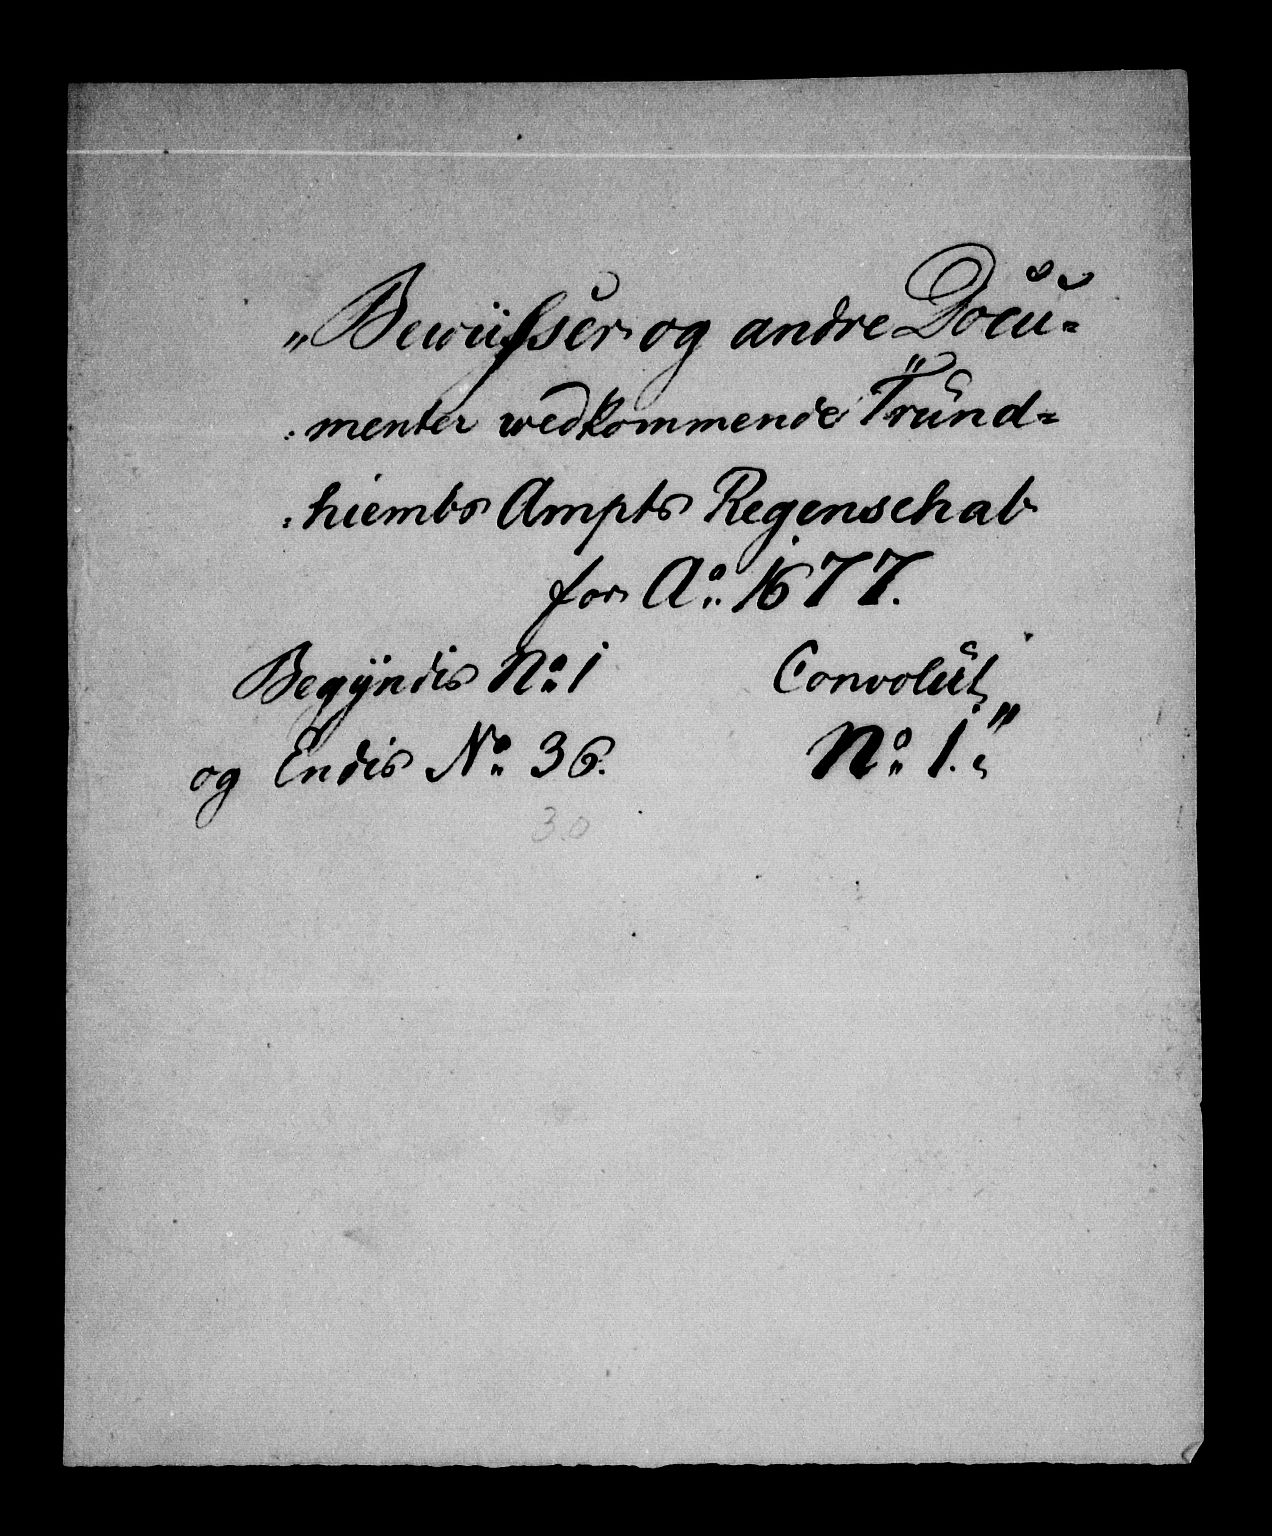 „Bewüsser og andre Docu=
menter wedkommende Trund=
hiembs Ampts Regenschab
for Ao: 1677.
Begÿndis No: 1
og Endis No: 36.
Convolut
No: 1."
30